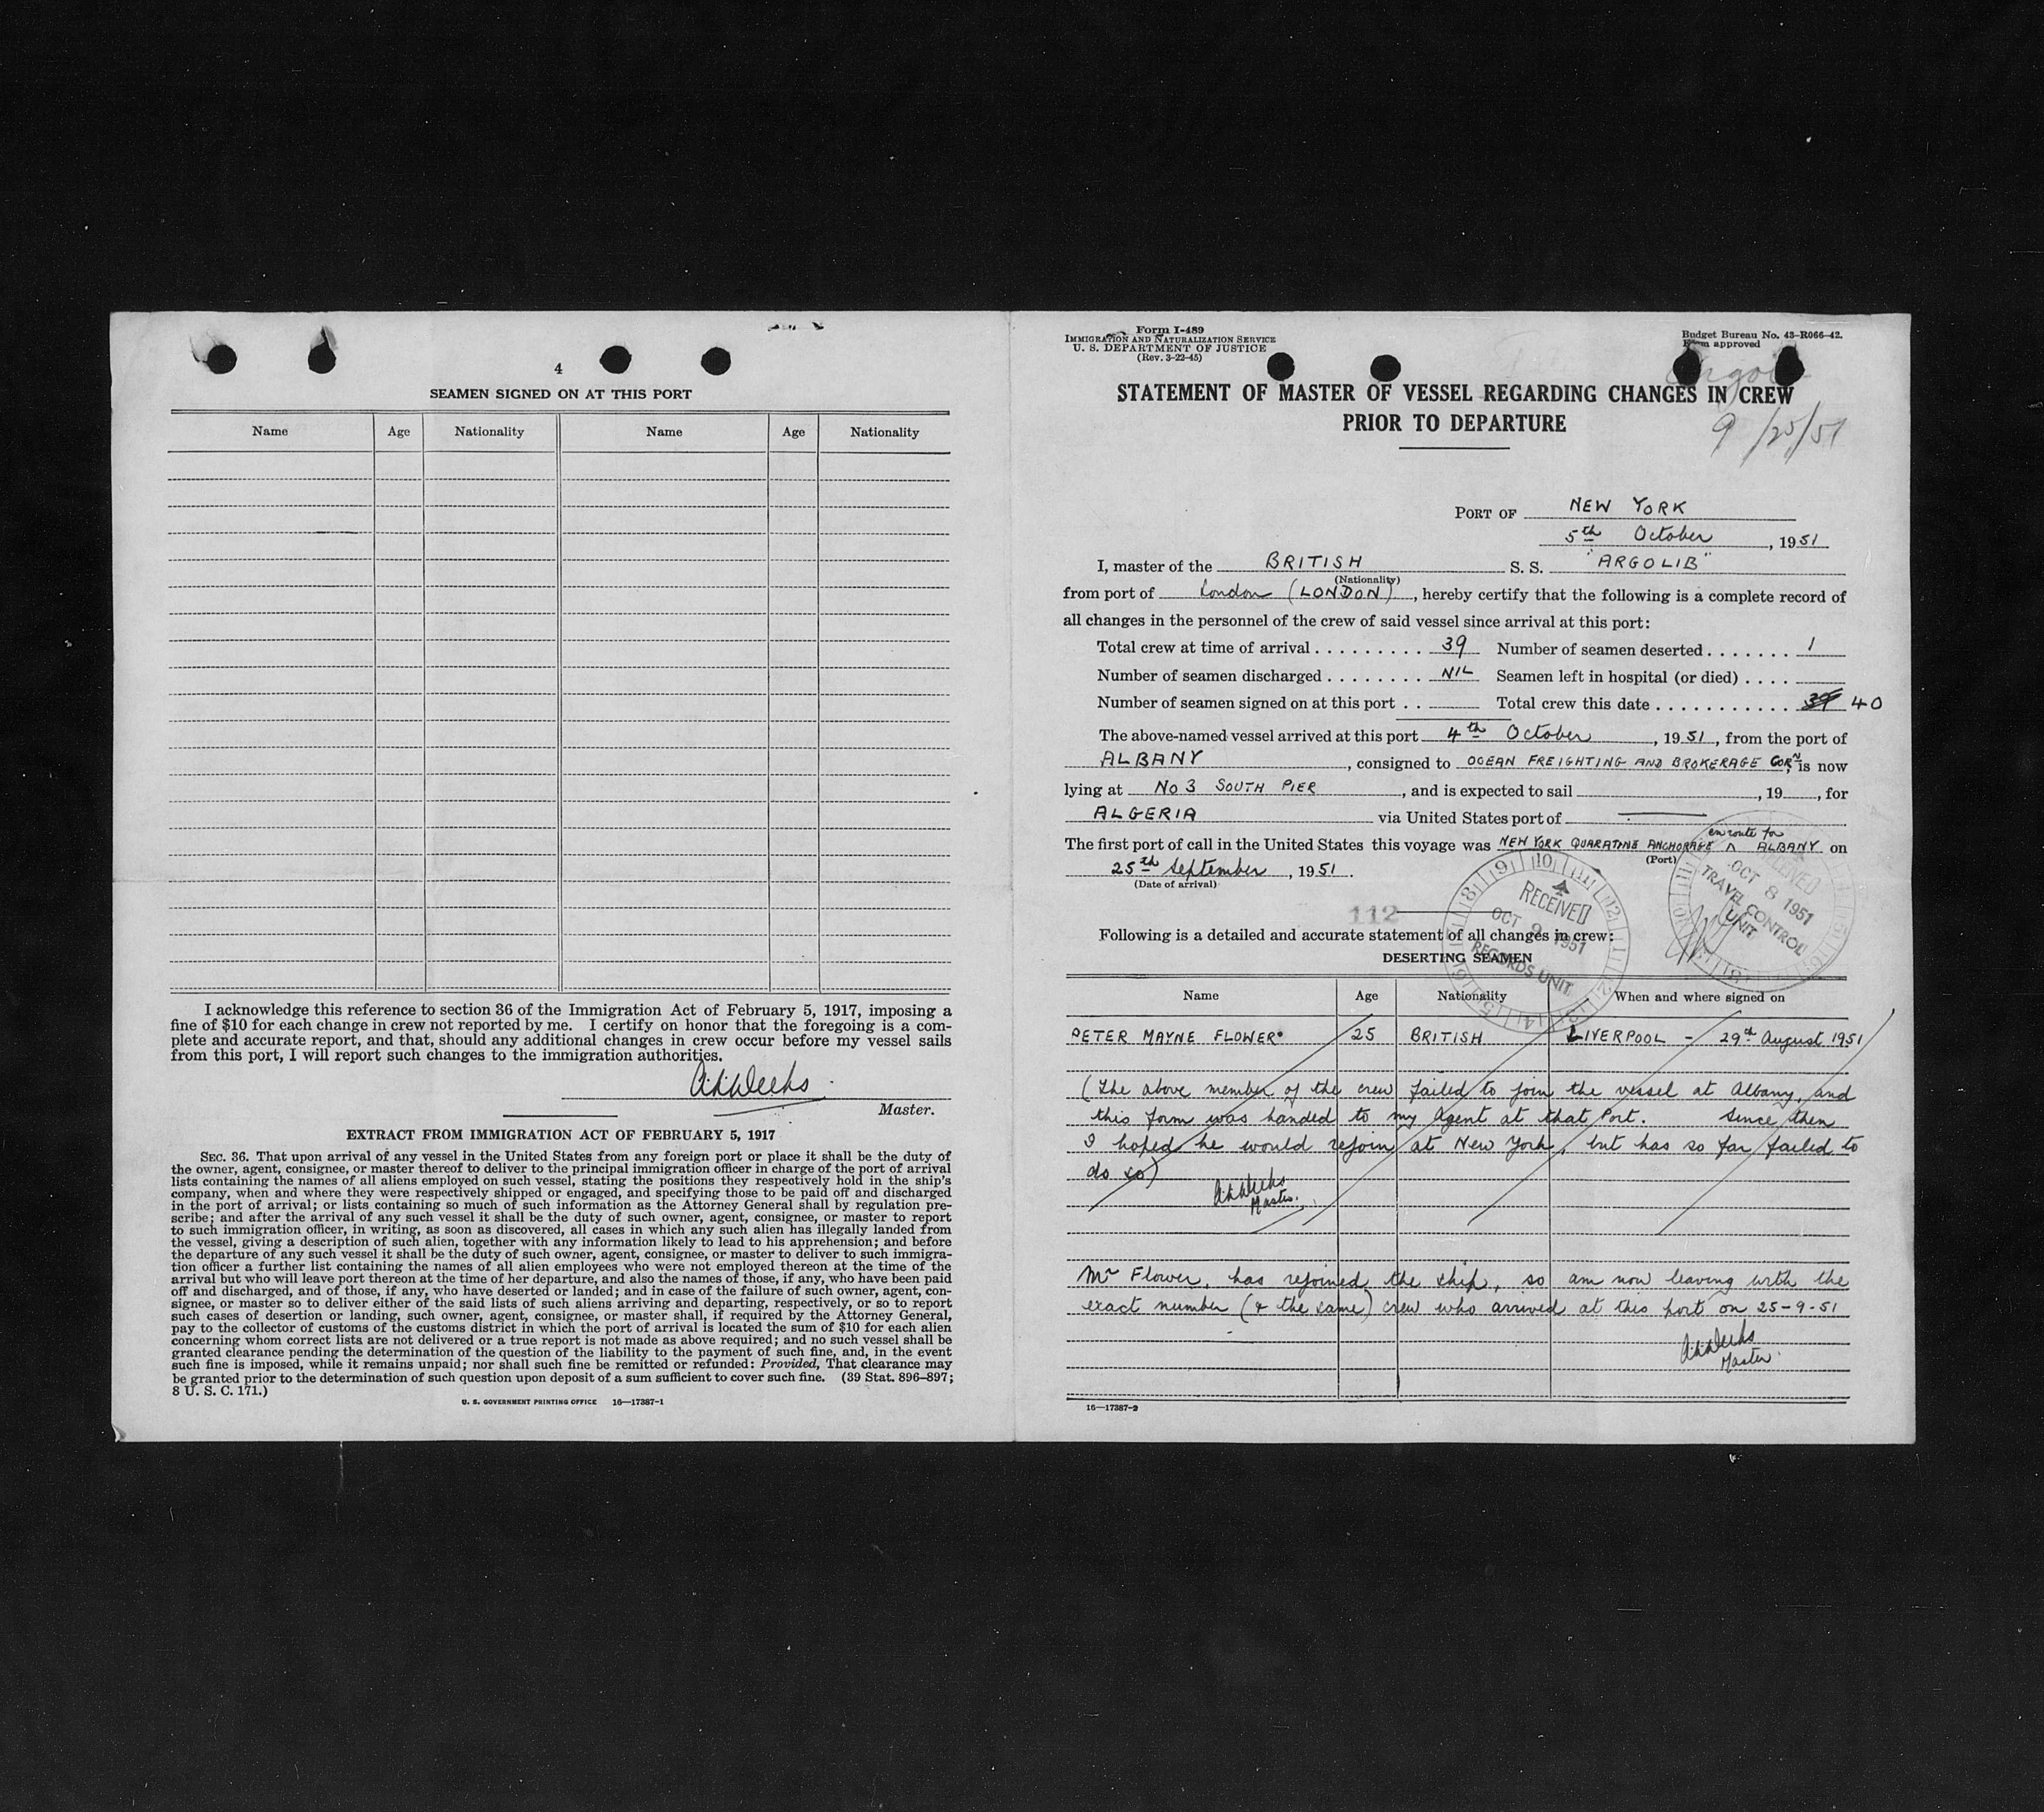 4
SEAMEN SIGNED ON AT THIS PORT
Name Age Nationality Name Age Nationality
I acknowledge this reference to section 36 of the Immigration Act of February 5, 1917, imposing a
fine of $10 for each change in crew not reported by me. I certify on honor that the foregoing is a com-
plete and accurate report, and that, should any additional changes in crew occur before my vessel sails
from this port, I will report such changes to the immigration authorities.
Master.
EXTRACT FROM IMMIGRATION ACT OF FEBRUARY 5, 1917
SEC. 36. That upon arrival of any vessel in the United States from any foreign port or place it shall be the duty of
the owner, agent, consignee, or master thereof to deliver to the principal immigration officer in charge of the port of arrival
lists containing the names of all aliens employed on such vessel, stating the positions they respectively hold in the ship's
company, when and where they were respectively shipped or engaged, and specifying those to be paid off and discharged
in the port of arrival; or lists containing so much of such information as the Attorney General shall by regulation pre-
scribe; and after the arrival of any such vessel it shall be the duty of such owner, agent, consignee, or master to report
to such immigration officer, in writing, as soon as discovered, all cases in which any such alien has illegally landed from
the vessel, giving a description of such alien, together with any information likely to lead to his apprehension; and before
the departure of any such vessel it shall be the duty of such owner, agent, consignee, or master to deliver to such immigra-
tion officer a further list containing the names of all alien employees who were not employed thereon at the time of the
arrival but who will leave port thereon at the time of her departure, and also the names of those, if any, who have been paid
off and discharged, and of those, if any, who have deserted or landed; and in case of the failure of such owner, agent, con-
signee, or master so to deliver either of the said lists of such aliens arriving and departing, respectively, or so to report
such cases of desertion or landing, such owner, agent, consignee, or master shall, if required by the Attorney General,
pay to the collector of customs of the customs district in which the port of arrival is located the sum of $10 for each alien
concerning whom correct lists are not delivered or a true report is not made as above required; and no such vessel shall be
granted clearance pending the determination of the question of the liability to the payment of such fine, and, in the event
such fine is imposed, while it remains unpaid; nor shall such fine be remitted or refunded: Provided, That clearance may
be granted prior to the determination of such question upon deposit of a sum sufficient to cover such fine. (39 Stat. 896–897;
8 U. S. C. 171.)
U. S. GOVERNMENT PRINTING OFFICE 16—17387-1
Form I-489
IMMIGRATION AND NATURALIZATION SERVICE
U. S. DEPARTMENT OF JUSTICE
(Rev. 3-22-45)
Budget Bureau No. 43-R066-42.
Form approved
STATEMENT OF MASTER OF VESSEL REGARDING CHANGES IN CREW
PRIOR TO DEPARTURE
9/25/51
PORT OF NEW YORK
5th October, 1951
I, master of the BRITISH S. S. "ARGOLIB"
(Nationality)
from port of London (LONDON), hereby certify that the following is a complete record of
all changes in the personnel of the crew of said vessel since arrival at this port:
Total crew at time of arrival . . . . . . . . . 39 Number of seamen deserted . . . . . . . 1
Number of seamen discharged . . . . . . . . NIL Seamen left in hospital (or died) . . . .
Number of seamen signed on at this port . . Total crew this date . . . . . . . . . . . 39 40
The above-named vessel arrived at this port 4th October, 1951, from the port of
ALBANY, consigned to OCEAN FREIGHTING AND BROKERAGE CORN, is now
lying at No 3 SOUTH PIER, and is expected to sail , 19 , for
ALGERIA via United States port of
en route for
The first port of call in the United States this voyage was NEW YORK QUARATINE ANCHORAGE ^ ALBANY on
(Port)
25th September, 1951.
(Date of arrival)
RECEIVED
OCT 8 1951
TRAVEL CONTROL
UNIT
112
RECEIVED
OCT 9 1951
RECORDS UNIT
Following is a detailed and accurate statement of all changes in crew:
DESERTING SEAMEN
Name Age Nationality When and where signed on
PETER MAYNE FLOWER 25 BRITISH LIVERPOOL - 29th August 1951
(The above member of the crew failed to join the vessel at Albany, and
this form was handed to my Agent at that Port. Since then
I hoped he would rejoin at New York, but has so far failed to
do so)
Master.
Mr Flower, has rejoined the ship, so am now leaving with the
exact number (& the same) crew who arrived at this port on 25-9-51
Master
16—17387-2